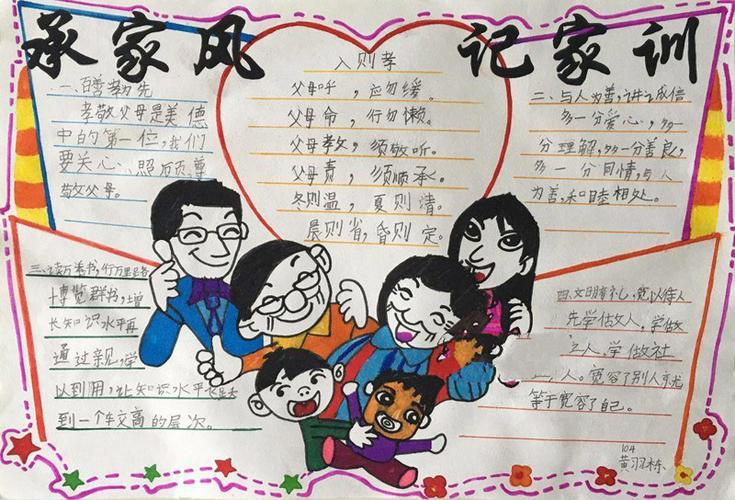 承家风 记家训
一、百善孝为先
孝敬父母是美德
中的第一位,我们
要关心、照顾、尊
敬父母。
入则孝
父母呼,应勿缓。
父母命,行勿懒。
父母教,须敬听。
父母责,须顺承。
冬则温,夏则清。
晨则省,昏则定。
二、与人为善,讲诚信
多一分爱心,多一
分理解,多一分善良,
多一分同情,与人
为善,和睦相处。
三、读万卷书,行万里路
博览群书,增
长知识水平再
通过亲见,学
以到用,让知识水平
到一个较高的层次。
四、文明礼,宽以待人
先学做人,学做
人,学做社
人。宽容了别人
等于宽容了自己。
104
黄羽栋